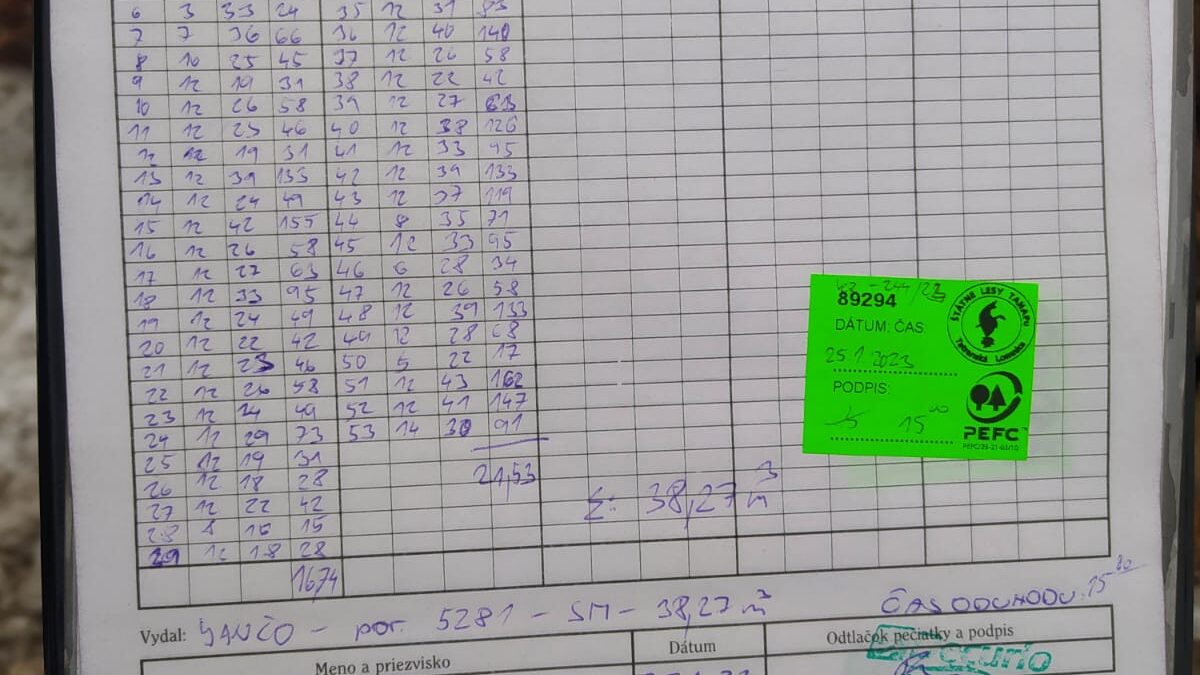 6 3 33 24 35 12 31 83
7 7 36 66 36 12 40 140
8 10 25 45 37 12 26 58
9 12 19 31 38 12 22 42
10 12 26 58 39 12 27
11 12 25 46 40 12 38 126
12 12 19 31 41 12 33 95
13 12 39 133 42 12 39 133
14 12 24 49 43 12 37 119
15 12 42 155 44 8 35 71
16 12 26 58 45 12 33 95
17 12 27 63 46 6 28 34
18 12 33 95 47 12 26 58
19 12 24 49 48 12 39 133
20 12 22 42 49 12 28 68
21 12 25 46 50 5 22 17
22 12 26 58 51 12 43 162
23 12 24 49 52 12 41 147
24 12 29 73 53 14 30 91
25 12 19 31
26 12 18 28 21,53
27 12 22 42 Σ: 38,27 m³
28 8 16 15
29 12 18 28
16,74
89294
ŠTÁTNE LESY TANAPU
Tatranská Lomnica
DÁTUM, ČAS:
25 1 2023
PODPIS:
15 15⁰⁰
PEFC™
PEFC/29-21-03/10
Vydal: JANČO - por. 5281 - SM - 38,27 m³ ČAS ODCHODU: 15²⁰
Meno a priezvisko
Dátum
Odtlačok pečiatky a podpis